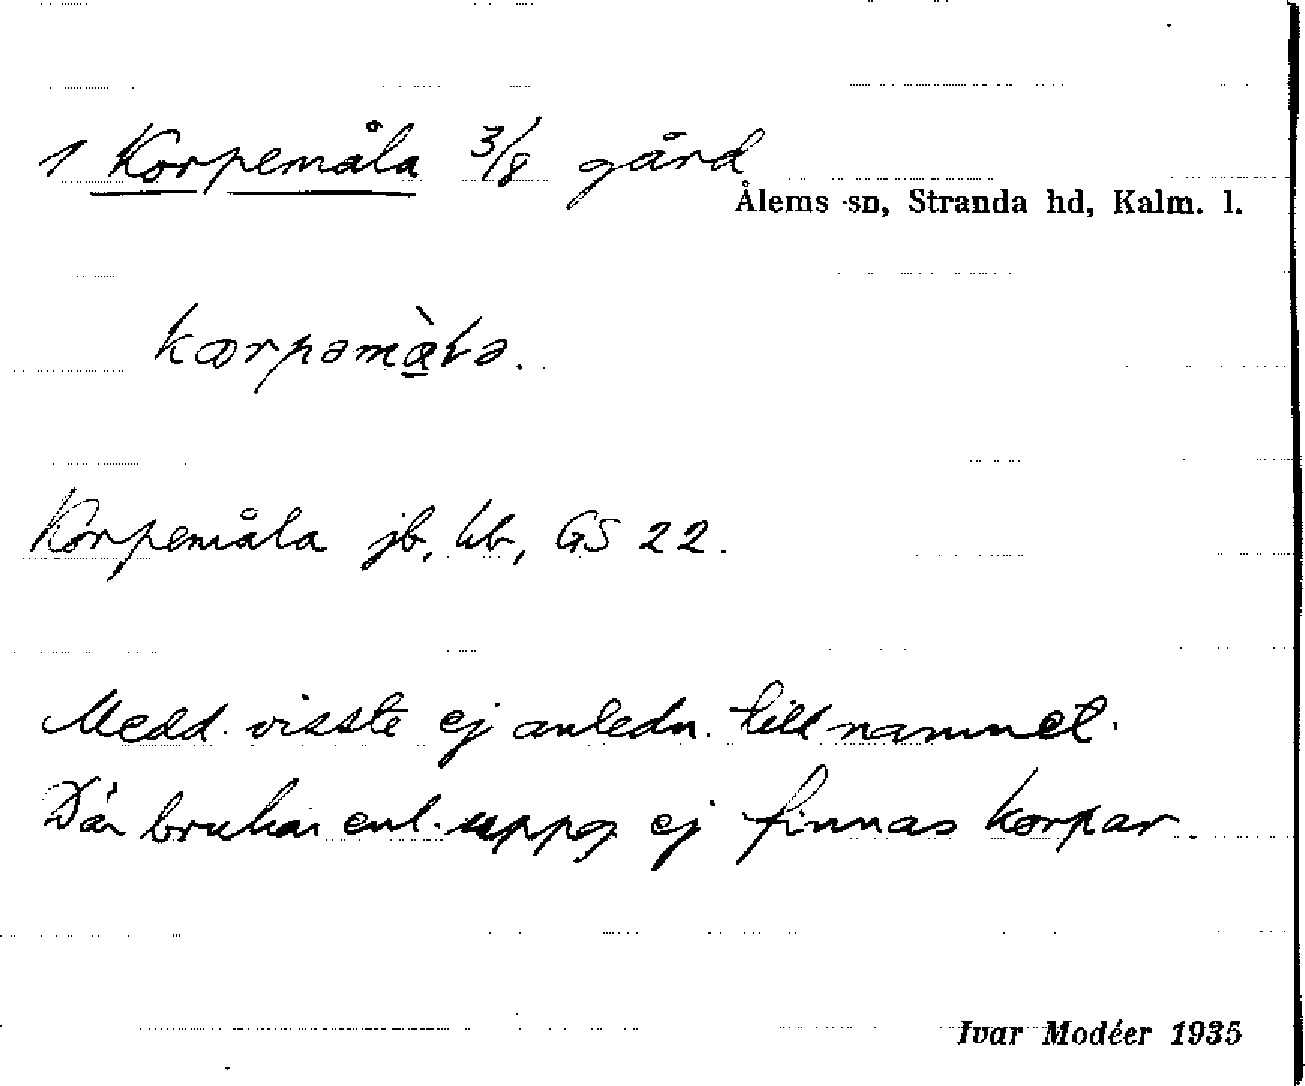 1 Korpemåla 3/8 gård
Ålems sn, Stranda hd, Kalm. l.
Korpemåla jb, kb, GS 22.
Medd. visste ej anledn. till namnet.
Där brukar enl. uppg ej finnas korpar.
Ivar Modéer 1935